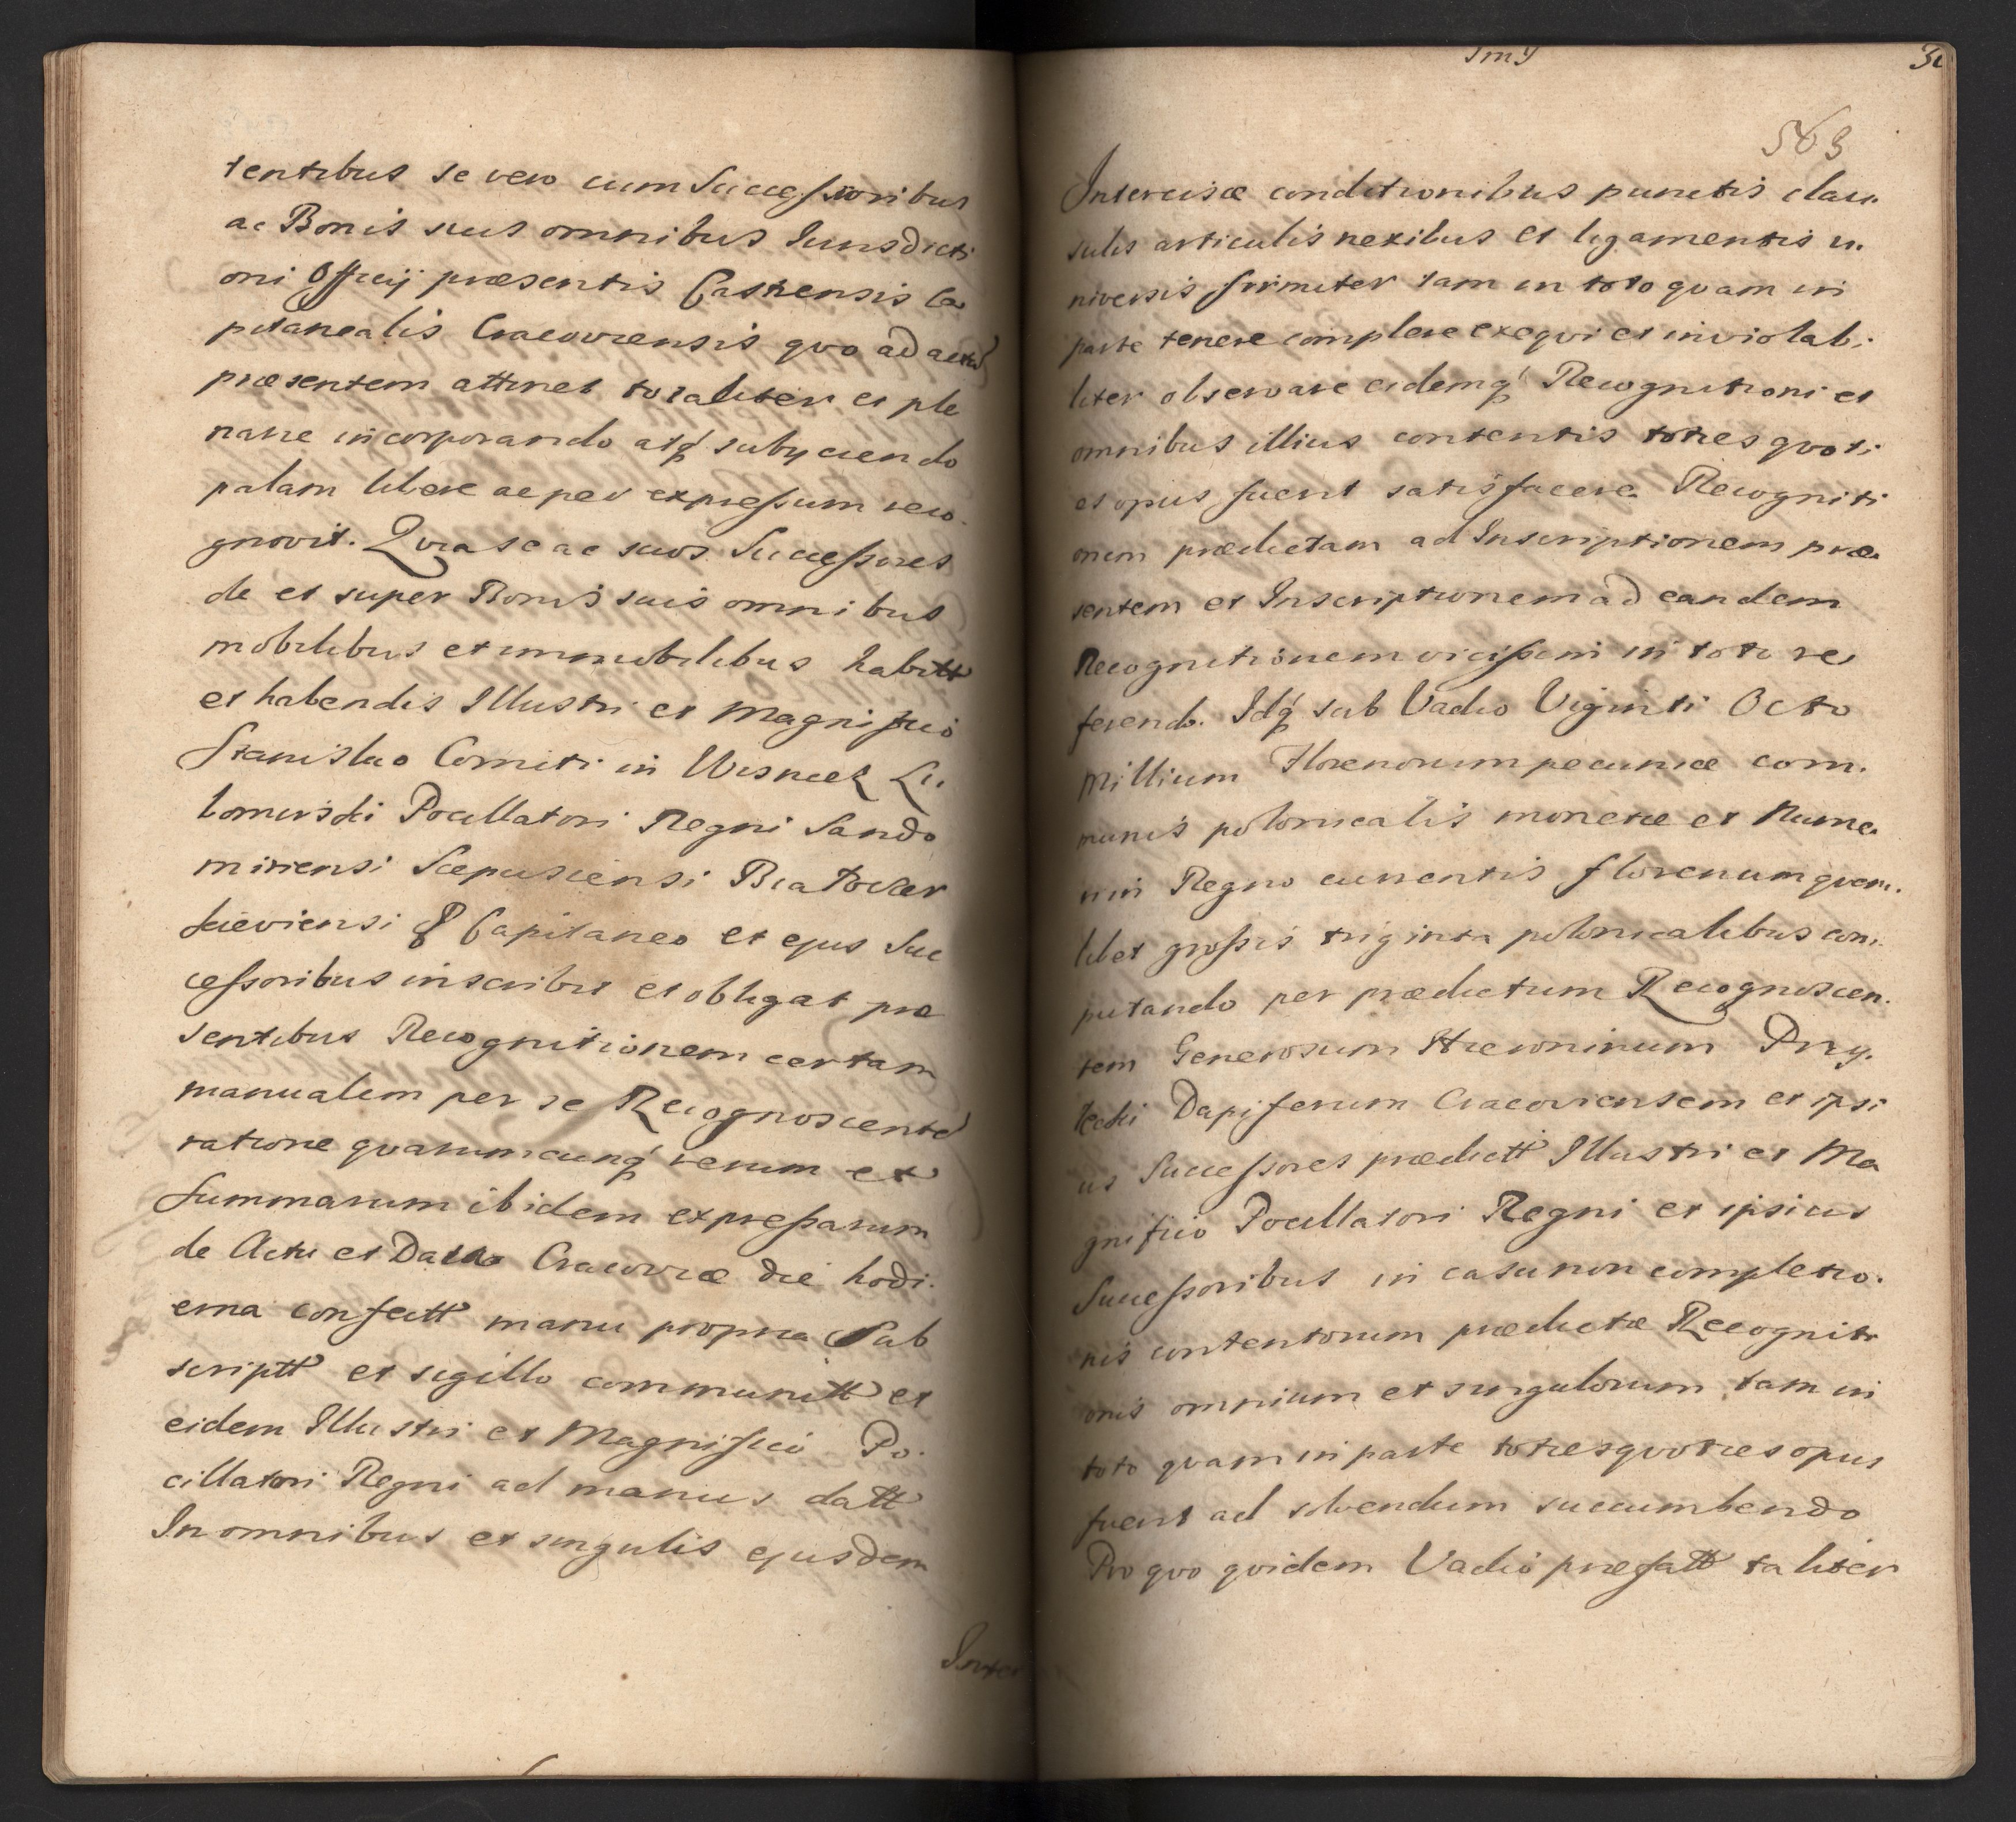 tentibus se vero cum Successoribus
ac Bonis suis omnibus Iurisdicti
oni Officij præsentis Castrensis Ca
pitanealis Cracoviensis quo ad actū
præsentem attinet totaliter et ple
narie incorporando atq́ subijciendo
palam libere ac per expressum reco
gnovit. Quia se ac suos Successores
de et super Bonis suis omnibus
mobilibus et immobilibus habitt
et habendis Illustri et Magnifico
Stanislao Comiti in Wisnicz Lu
bomirski Pocillatori Regni Sando
miriensi Scepusiensi
Capitaneo et ejus Suc
cessoribus inscribit et obligat præ
sentibus Recognitionem certam
manualem per se Recognoscentē
ratione quarumcunq́ rerum et
Summarum ibidem expressarum
de Actu et Datto Cracoviæ die hodi.
erna confectt manu propria Sub
scriptt et sigillo communitt et
eidem Illustri et Magnifico Po.
cillatori Regni ad manus datt
In omnibus et singulis ejusdem
Inter
563
Intercisæ conditionibus punctis clau.
sulis articulis nexibus et ligamentis u.
niversis firmiter tam in toto quam in
parte tenere complere exequi et inviolabi
liter observare eidemq́ Recognitioni et
omnibus illius contentis toties quoti
es opus fuerit satisfacere. Recogniti
onem prædictam ad Inscriptionem præ
sentem et Inscriptionem ad eandem
Recognitionem vicissim in toto re
ferendo. Idq́ sub Vadio Viginti Octo
Millium Florenorum pecuniæ com.
munis polonicalis monetæ et Nume
ri in Regno currentis florenum quem.
libet grossis triginta polonicalibus com
putando per prædictum Recognoscen.
tem Generosum Hieronimum Przy.
łecki Dapiferum Cracoviensem et ipsi
us Successores prædictt Illustri et Ma
gnifico Pocillatori Regni et ipsius
Successoribus in casu non completio.
nis contentorum prædictæ Recogniti
onis omnium et singulorum tam in
toto quam in parte toties quoties opus
fuerit ad solvendum succumbendo
Pro quo quidem Vadio præfatt taliter